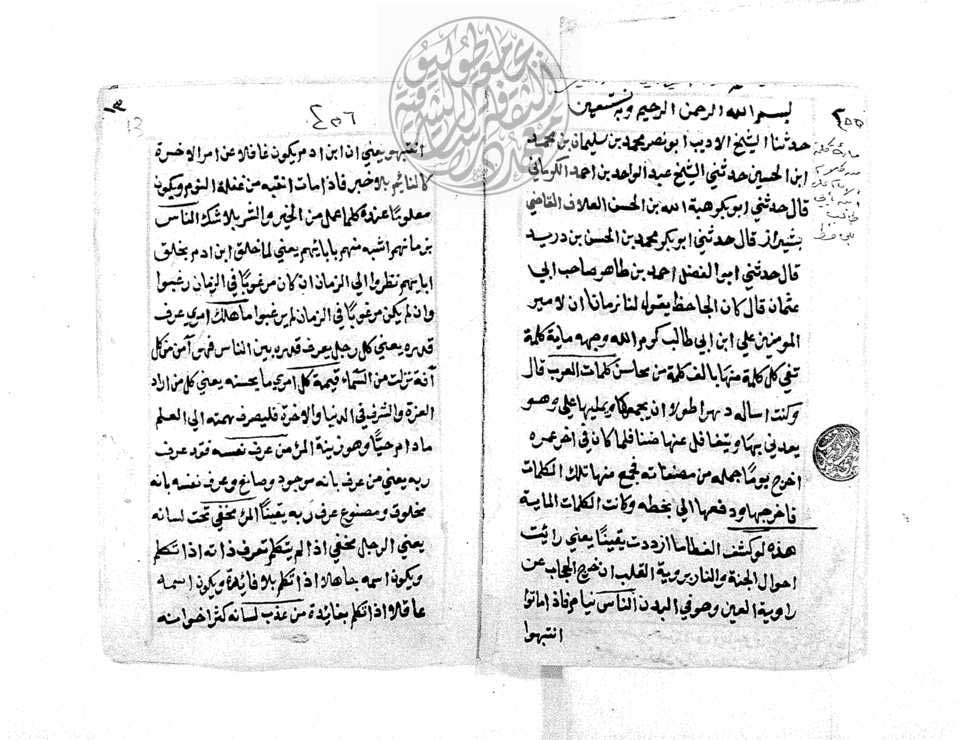 بسم الله الرحمن الرحيم وبه نستعين
حدثنا الشيخ الاديب ابو نصر محمد بن سليمان بن محمد
ابن الحسين حدثني الشيخ عبد الواحد بن احمد الكرماني
قال حدثني ابو بكر هبة الله بن الحسن العلاف القاضي
بشيراز قال حدثني ابو بكر محمد بن الحسن بن دريد
قال حدثني ابو الفضل احمد بن طاهر صاحب ابي
عثمان قال كان الجاحظ يقول لنا زمانا ان لامير
المومنين علي ابن ابي طالب كرم الله وجهه ماية كلمة
تفي كل كلمة منها بالف كلمة من محاسن كلمات العرب قال
وكنت اساله دهرا طولا ان يجمعها ويمليها علي وهو
يعدني بها ويتغافل عنها ضنا فلما كان في اخر عمره
اخرج يوما جمله من مصنفاته فجمع منها تلك الكلمات
فاخرجها ودفعها الي بخطه وكانت الكلمات الماية
هذه لو كشف الغطا ما ازددت يقينًا يعني رائيت
احوال الجنة والنار بروية القلب ان خرج الحجاب عن
راوية العين وهو في البدن الناس نيام فاذا ماتوا
انتبهوا
٤٥٦
١٣
13
انتبهو يعني ان ابن ادم يكون غافلا عن امر الاخرة
كالنائم بلا خير فاذا مات انتبه من غفلة النوم ويكون
معلومًا عنده كلما عمل من الخير والشر بلا شك الناس
بزمانهم اشبه منهم بابائهم يعني لما خلق ابن ادم بخلق
اباءيهم نظروا الي الزمان ان كان مرغوبًا في الزمان رغبوا
وان لم يكن مرغوبًا في الزمان لم يرغبوا ما هلك امرئ عرف
قدره يعني كل رجل يعرف قدره بين الناس فهو آمن من كل
آفة نزلت من السماء قيمة كل امرئ ما يحسنه يعني كل من اراد
العزة والشرف في الدنيا والاخرة فليصرف همته الي العلم
ما دام حيًا وهو زينة المؤمن عرف نفسه فقد عرف
ربه يعني من عرف بانه موجود وصانع وعرف نفسه بانه
مخلوق ومصنوع عرف ربه يقينًا المرء مخفي تحت لسانه
يعني الرجل مخفي اذا لم يتكلم تعرف ذاته اذا تكلم
ويكون اسمه جاهلا اذا تكلم بلا فائدة ويكون اسمه
عاقلا اذا تكلم بفائيدة من عذب لسانه كثر اخوانه